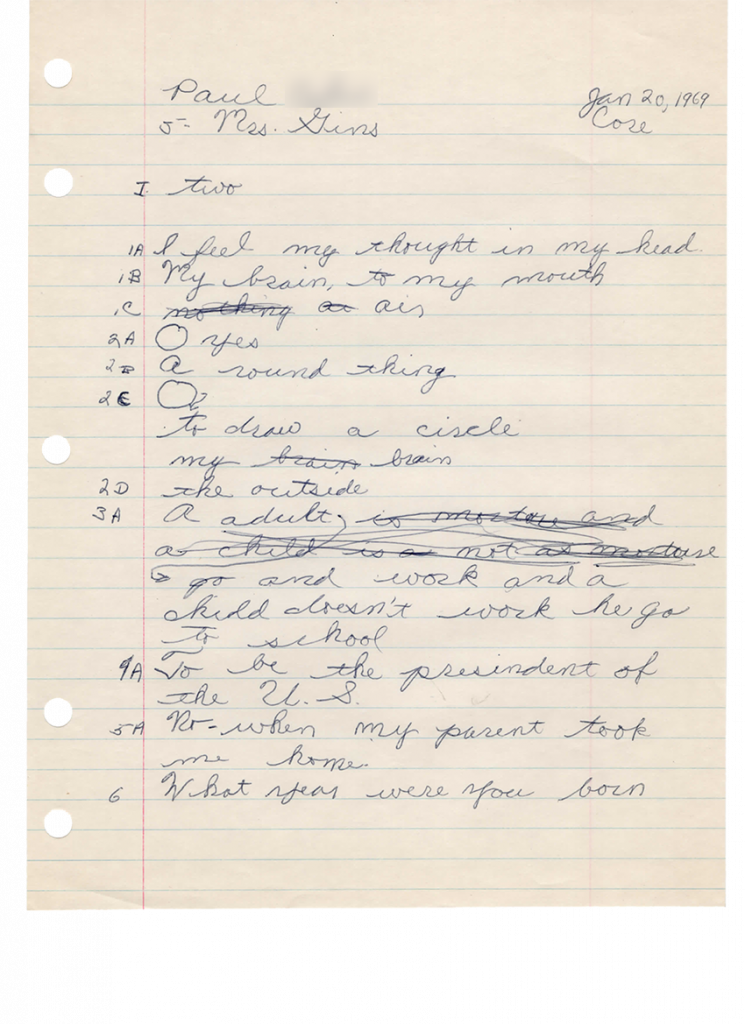 Paul
Jan 20, 1969
5- Mrs. Gins
Core
I. two
1A I feel my thought in my head.
1B My brain, to my mouth
1C nothing at air
2A O yes
2B A round thing
2C O
to draw a circle
my brain brain
2D the outside
3A A adult, is morture and
a child is a not as morture
go and work and a
chidd doesn't work he go
to school
4A To be the presindent of
the U. S.
5A No - when my parent took
me home.
6 What year were you born